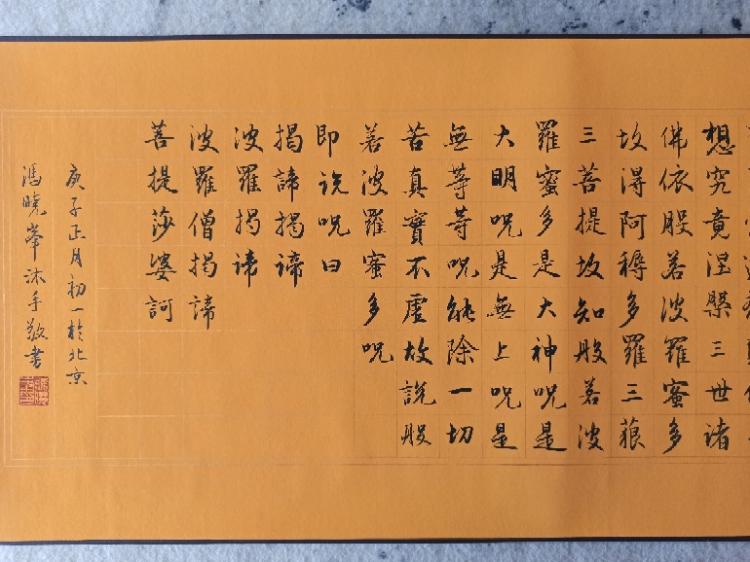 想究竟涅槃三世諸
佛依般若波羅蜜多
故得阿耨多羅三藐
三菩提故知般若波
羅蜜多是大神呪是
大明呪是無上呪是
無等等呪能除一切
苦真實不虛故說般
若波羅蜜多呪
即說呪曰
揭諦揭諦
波羅揭諦
波羅僧揭諦
菩提莎婆訶
庚子正月初一於北京
馮曉峯沐手敬書